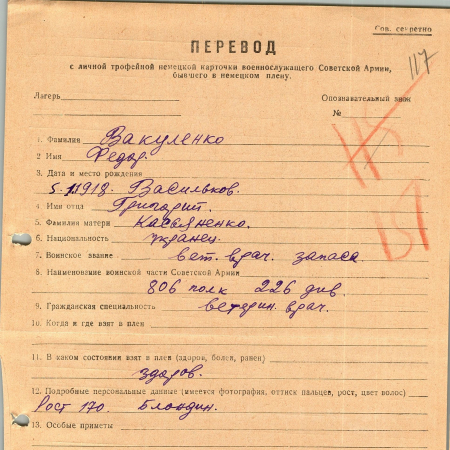 Сов. секретно
117
ПЕРЕВОД
с личной трофейной немецкой карточки военнослужащего Советской Армии,
бывшего в немецком плену.
Лагерь
Опознавательный знак
№
1. Фамилия Вакуленко
2 Имя Федор.
3. Дата и место рождения
5.1.1918. Васильков.
4. Имя отца Григорий.
5. Фамилия матери Касьяненко.
6. Национальность украинец.
7. Воинское звание вет. врач. запаса
8. Наименование воинской части Советской Армии
806 полк 226 див.
9. Гражданская специальность ветерин. врач.
10. Когда и где взят в плен
11. В каком состоянии взят в плен (здоров, болен, ранен)
здоров.
12. Подробные персональные данные (имеется фотография, оттиск пальцев, рост, цвет волос)
Рост 170. Блондин.
13. Особые приметы